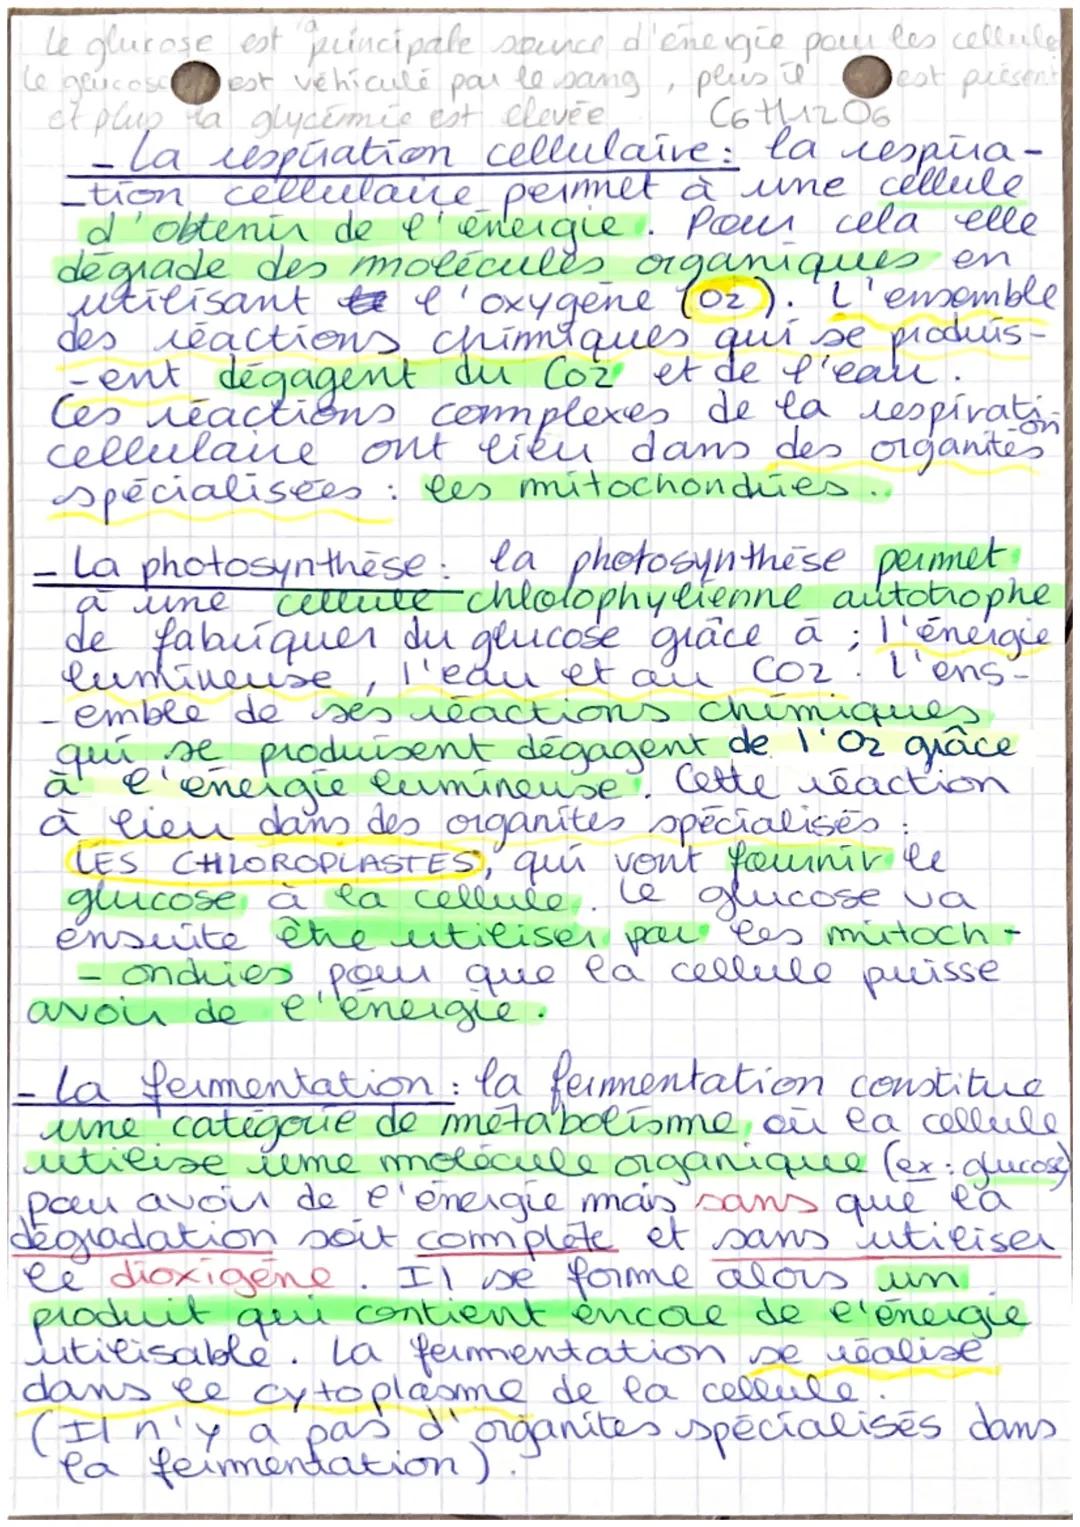 Le glucose est la principale source d'énergie pour les cellule
Le glucose est véhiculé par le sang, plus il est présent
et plus la glycémie est élevée C6H12O6
- La respiration cellulaire : la respira-
-tion cellulaire permet à une cellule
d'obtenir de l'énergie. Pour cela elle
dégrade des molécules organiques en
utilisant l'oxygène (O2). L'ensemble
des réactions chimiques qui se produis-
-ent dégagent du CO2 et de l'eau.
Ces réactions complexes de la respiration
cellulaire ont lieu dans des organites
spécialisées : les mitochondries..
- La photosynthèse : la photosynthèse permet
à une cellule chlolophylienne autotrophe
de fabriquer du glucose grâce à ; l'énergie
lumineuse, l'eau et au CO2. L'ens-
-emble de ses réactions chimiques
qui se produisent dégagent de l'O2 grâce
à l'énergie lumineuse. Cette réaction
à lieu dans des organites spécialisés :
LES CHLOROPLASTES, qui vont fournir le
glucose à la cellule. Le glucose va
ensuite être utiliser par les mitoch-
-ondries pour que la cellule puisse
avoir de l'énergie.
- La fermentation : la fermentation constitue
une catégorie de métabolisme où la cellule
utilise une molécule organique (ex : glucose)
pour avoir de l'énergie mais sans que la
dégradation soit complète et sans utiliser
le dioxigène. Il se forme alors un
produit qui contient encore de l'énergie
utilisable. La fermentation se réalise
dans le cytoplasme de la cellule.
(Il n'y a pas d'organites spécialisés dans
la fermentation).